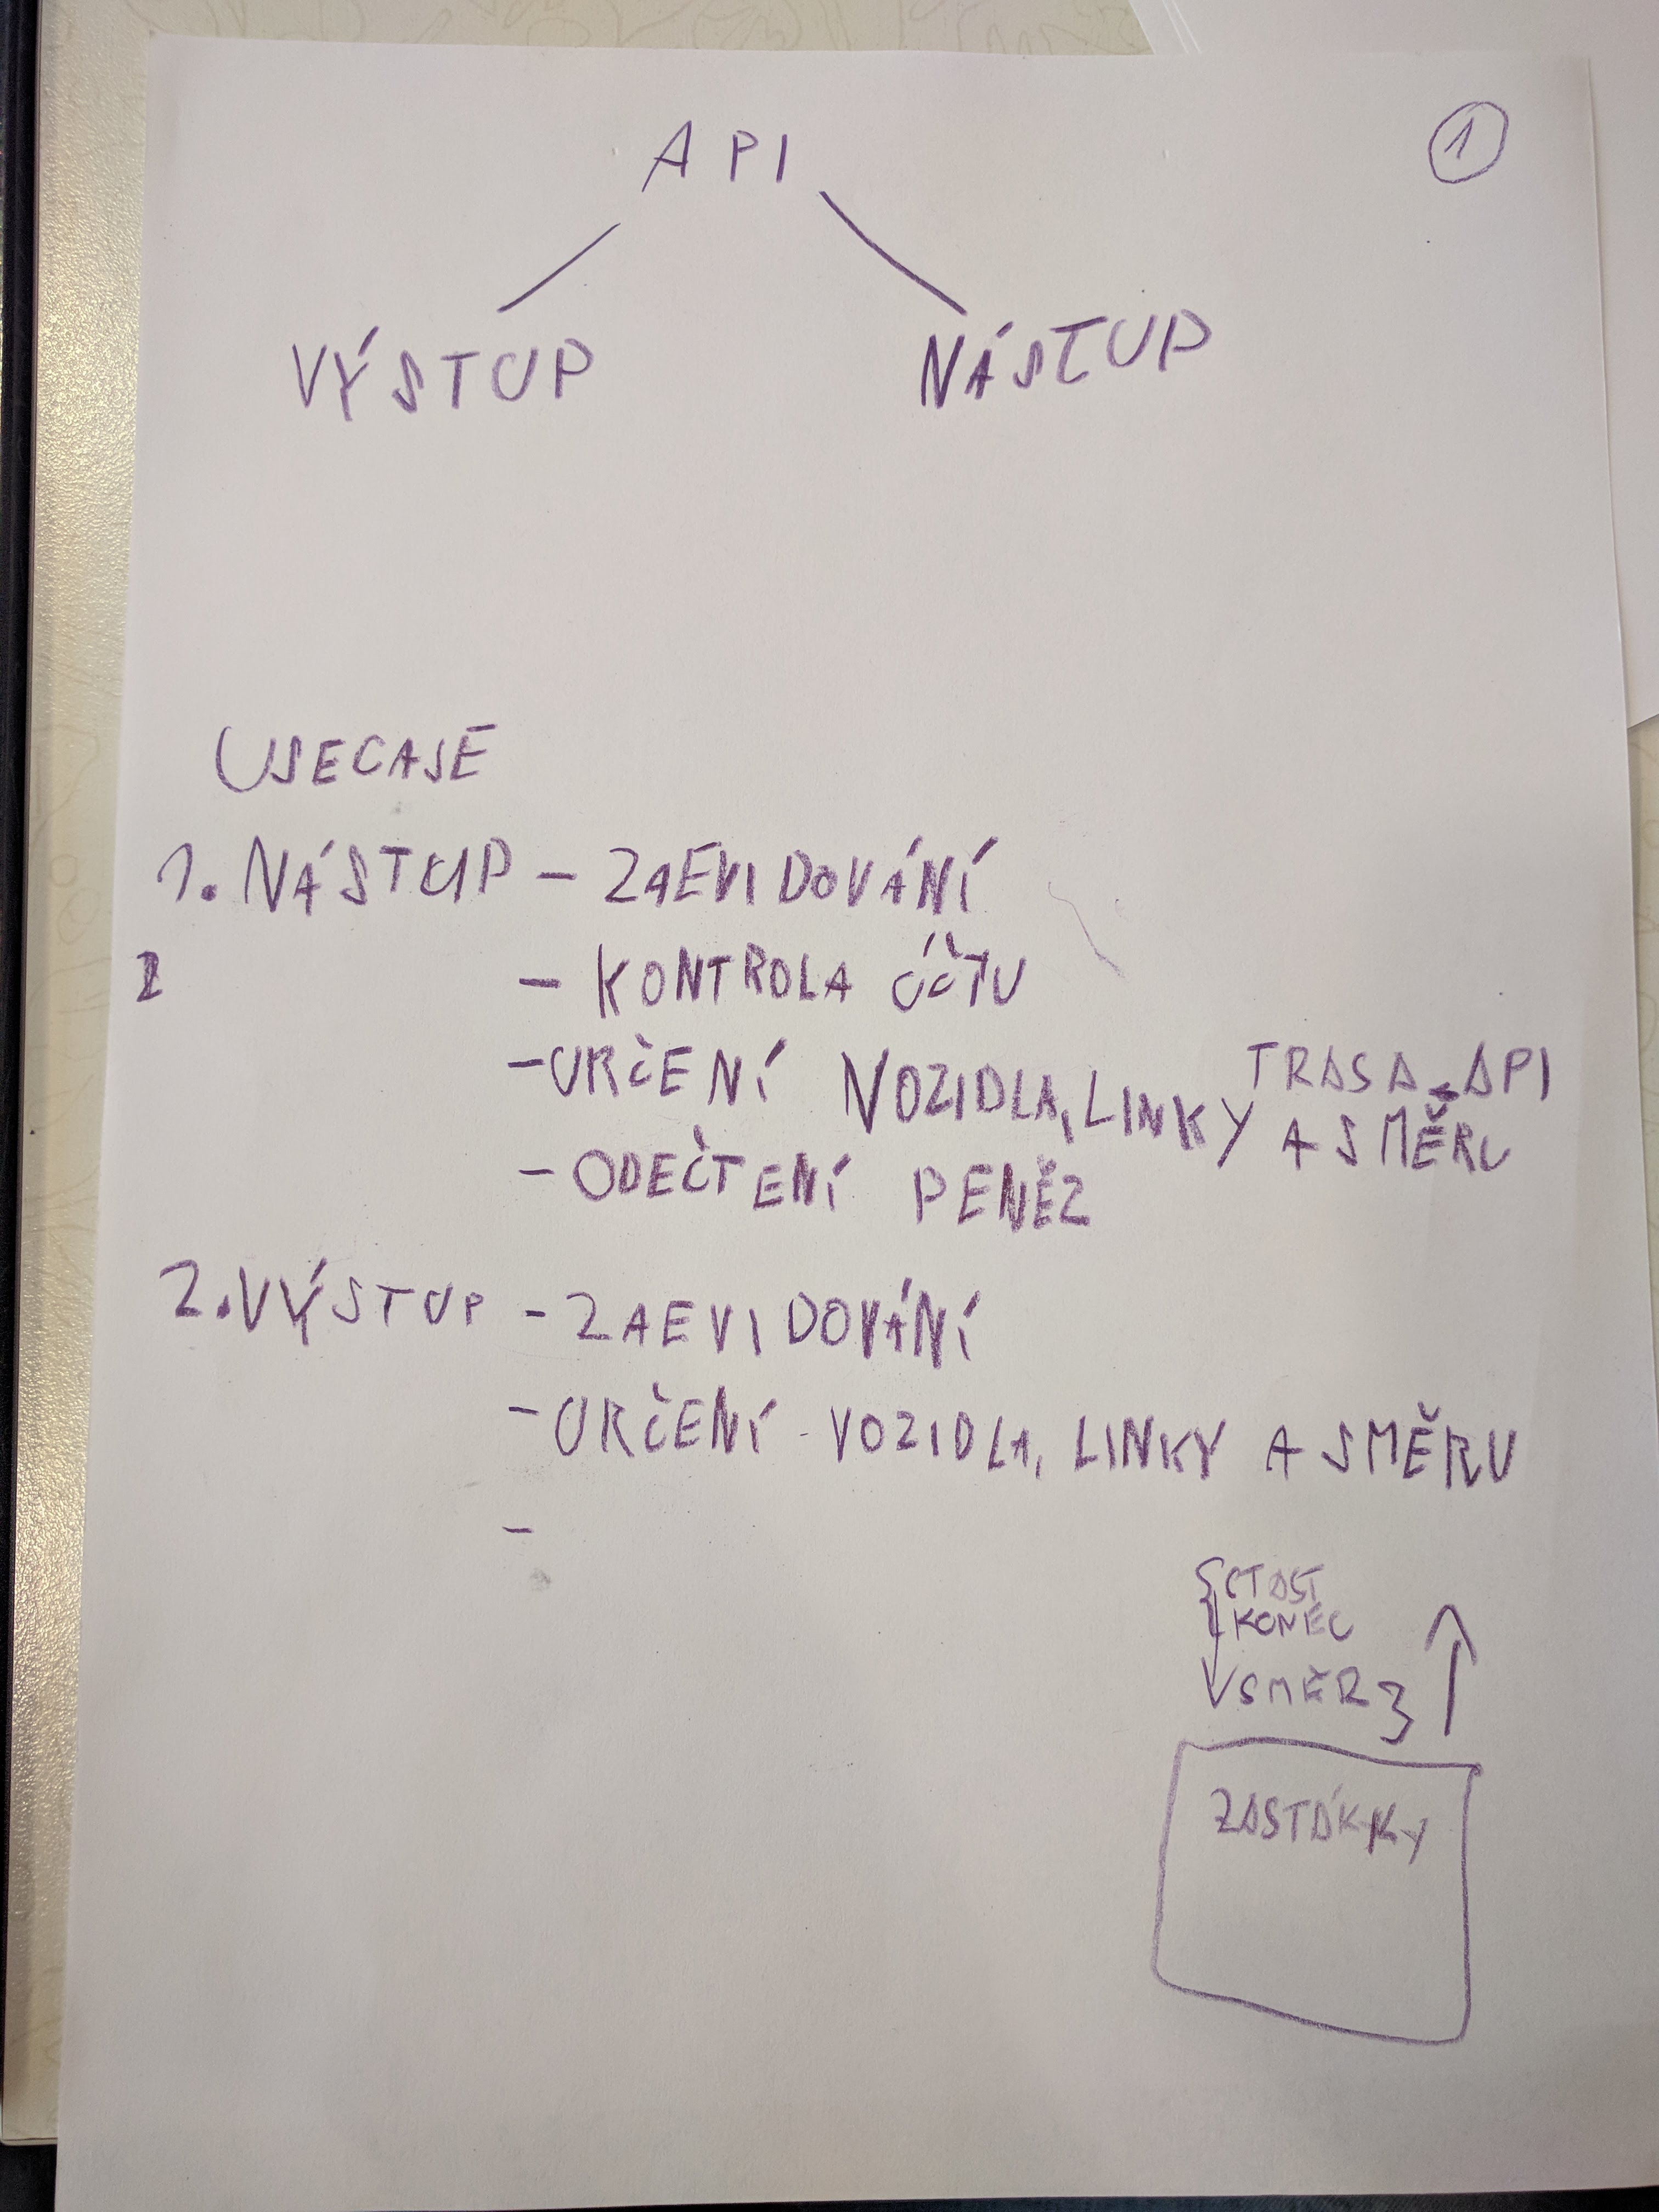 1
API
VÝSTUP NÁSTUP
USECASE
1. NÁSTUP - ZAEVIDOVÁNÍ
2 - KONTROLA ÚČTU
TRASA API
- URČENÍ VOZIDLA, LINKY A SMĚRU
- ODEČTENÍ PENĚZ
2. VÝSTUP - ZAEVIDOVÁNÍ
- URČENÍ VOZIDLA, LINKY A SMĚRU
-
KONEC
SMĚR }